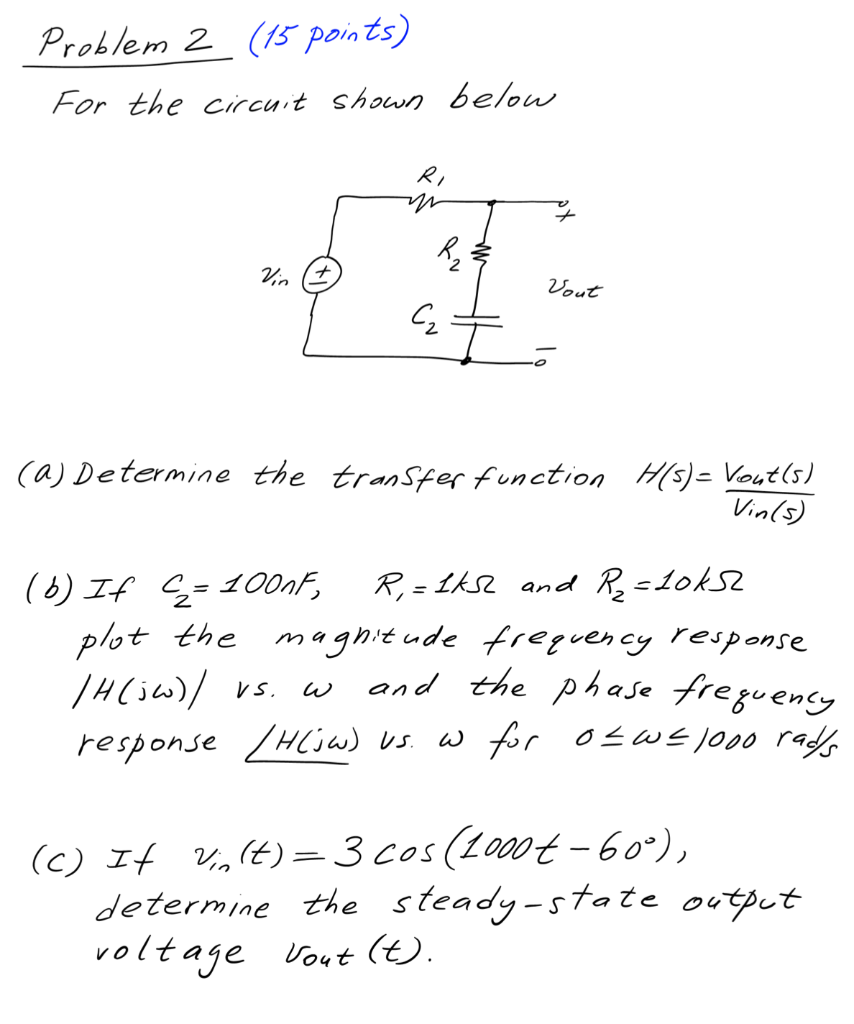 Problem 2 (15 points)
For the circuit shown below
R1
+
R2
Vin
±
Vout
C2
−
(a) Determine the transfer function H(s)= Vout(s)
Vin(s)
(b) If C2=100nF, R1=1kΩ and R2=10kΩ
plot the magnitude frequency response
|H(jω)| vs. ω and the phase frequency
response ∠H(jω) vs. ω for 0≤ω≤1000 rad/s
(c) If vin(t)=3cos(1000t-60°),
determine the steady-state output
voltage vout(t).